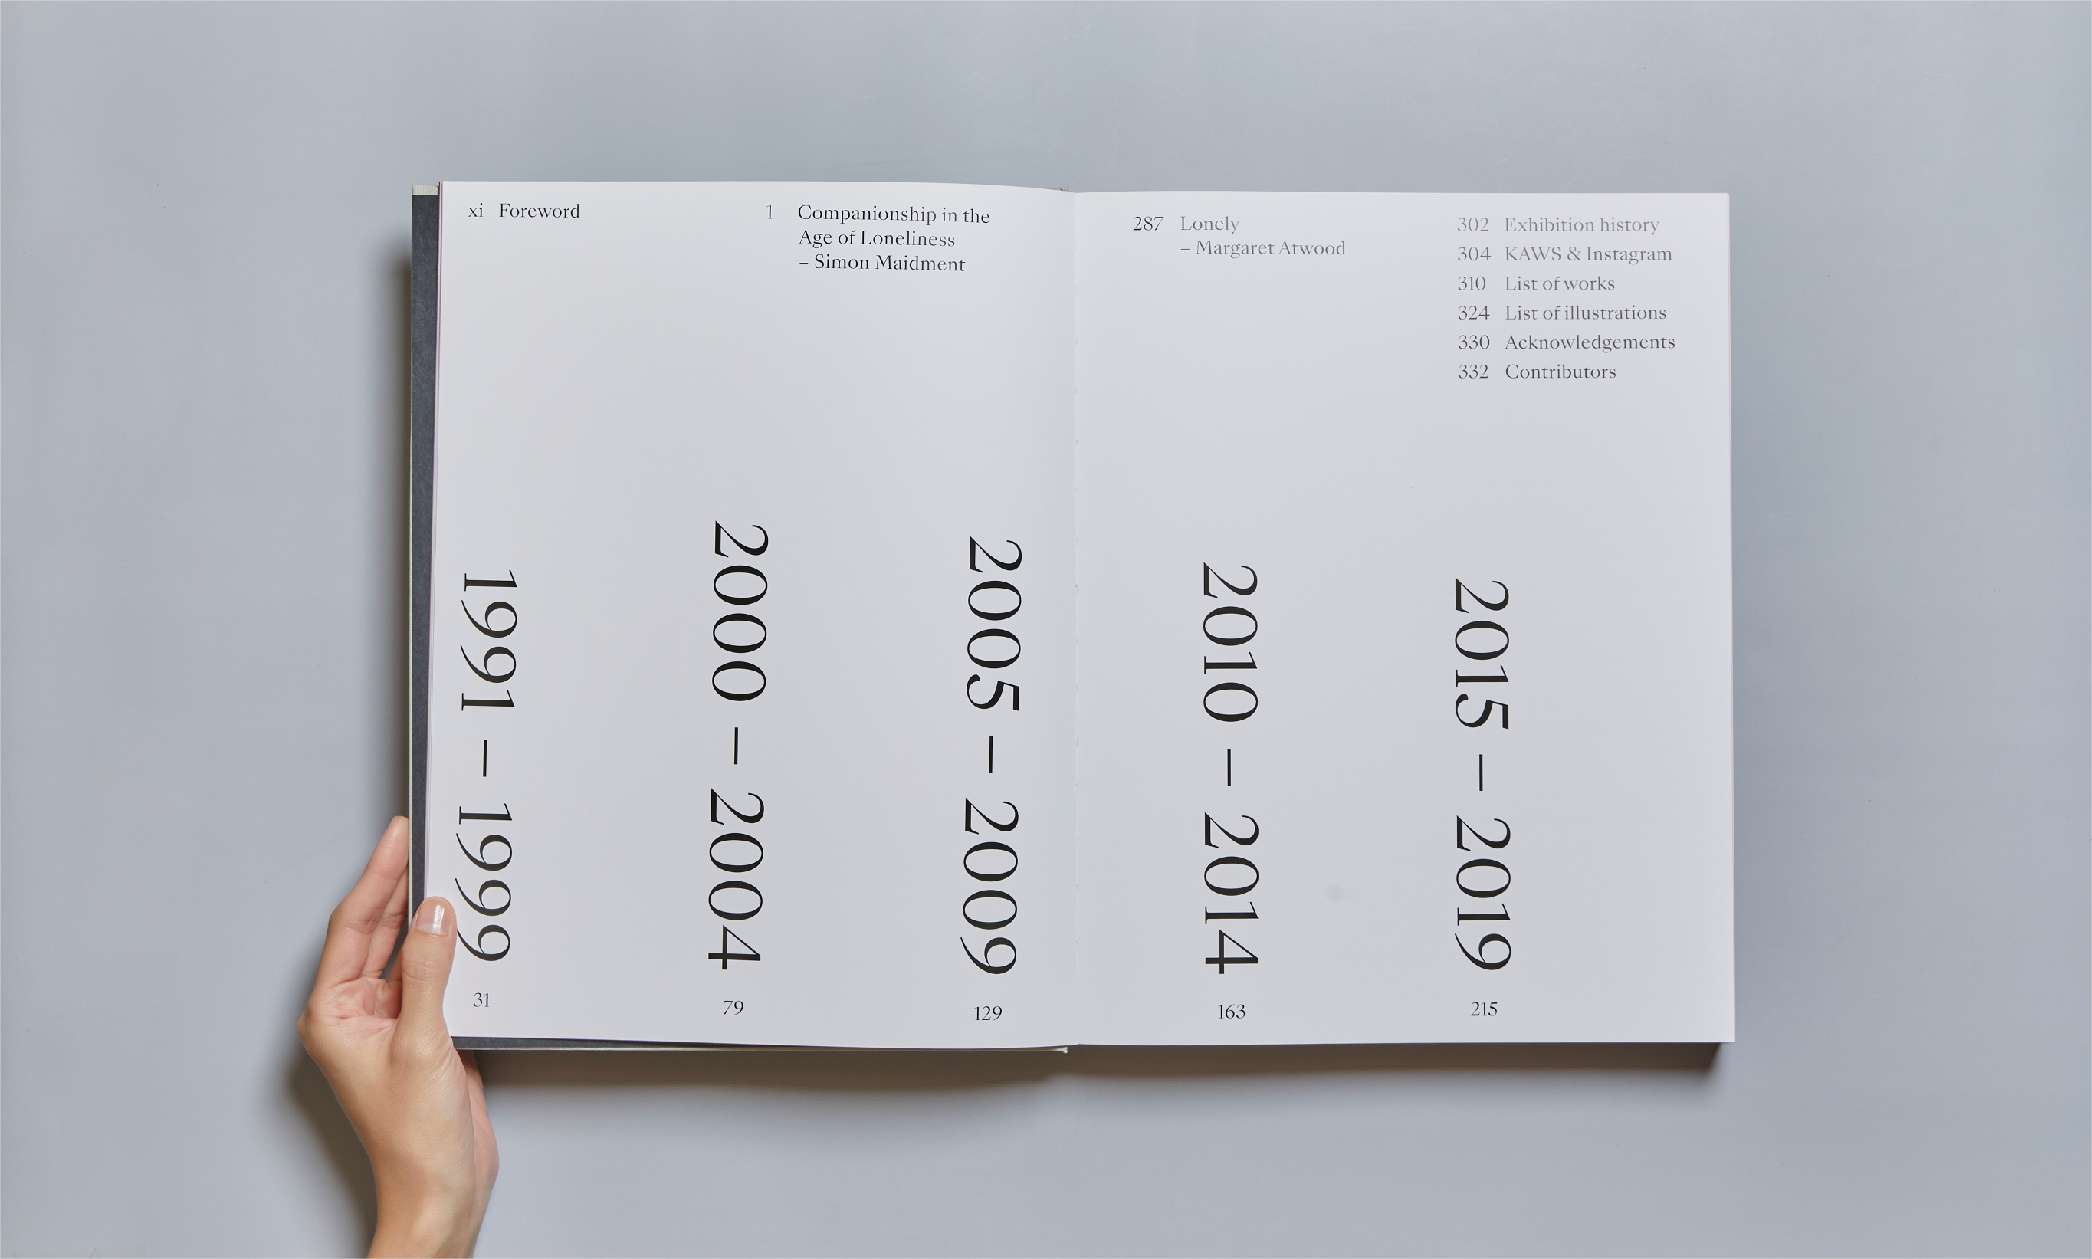 xi Foreword
1 Companionship in the
Age of Loneliness
– Simon Maidment
287 Lonely
– Margaret Atwood
302 Exhibition history
304 KAWS & Instagram
310 List of works
324 List of illustrations
330 Acknowledgements
332 Contributors
1991 – 1999
31
2000 – 2004
79
2005 – 2009
129
2010 – 2014
163
2015 – 2019
215